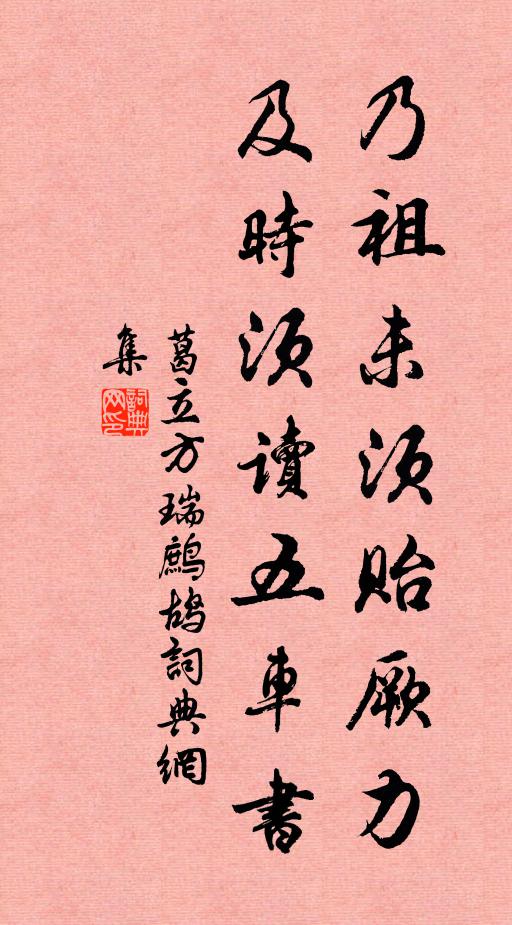 乃祖未須貽厥力
及時須讀五車書
葛立方瑞鷓鴣詞典網
集
詞典網印